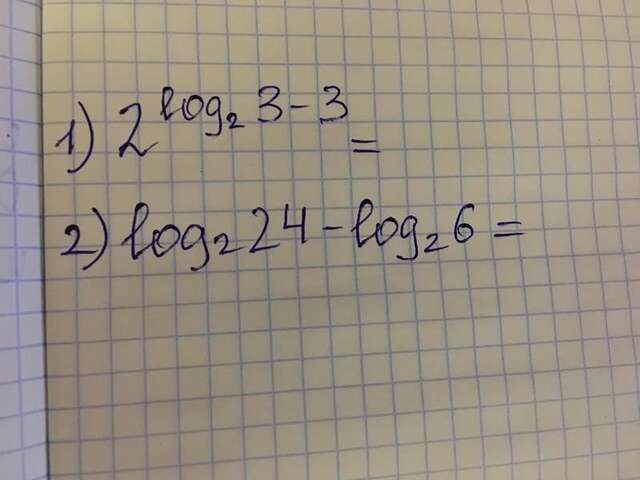 1) 2^{log₂ 3 - 3} =
2) log₂ 24 - log₂ 6 =